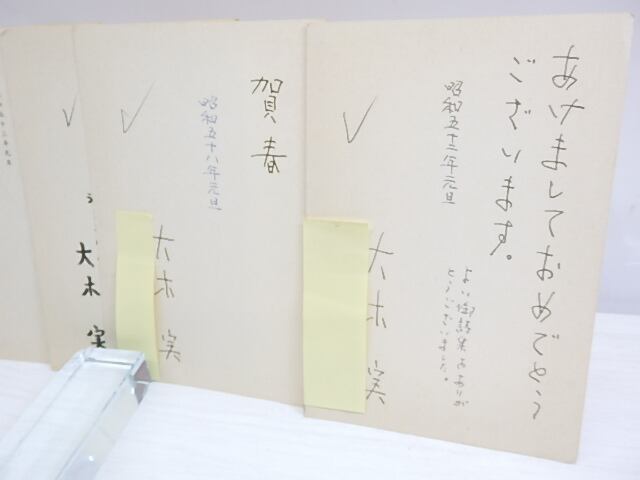 あけまして おめでとう
ございます。
昭和五十三年元旦
よい御話集 ありが
とうございました。
大木 実
賀春
昭和五十八年元旦
大木 実
大木 実